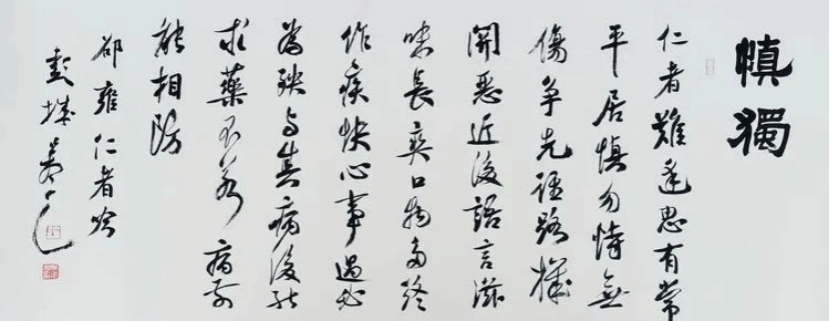 慎獨
仁者難逢思有常
平居慎勿恃無
傷爭先徑路機
關惡近後語言滋
味長爽口物多終
作疾快心事過必
為殃與其病後能
求藥不若病前
能相防
邵雍仁者吟
彭城